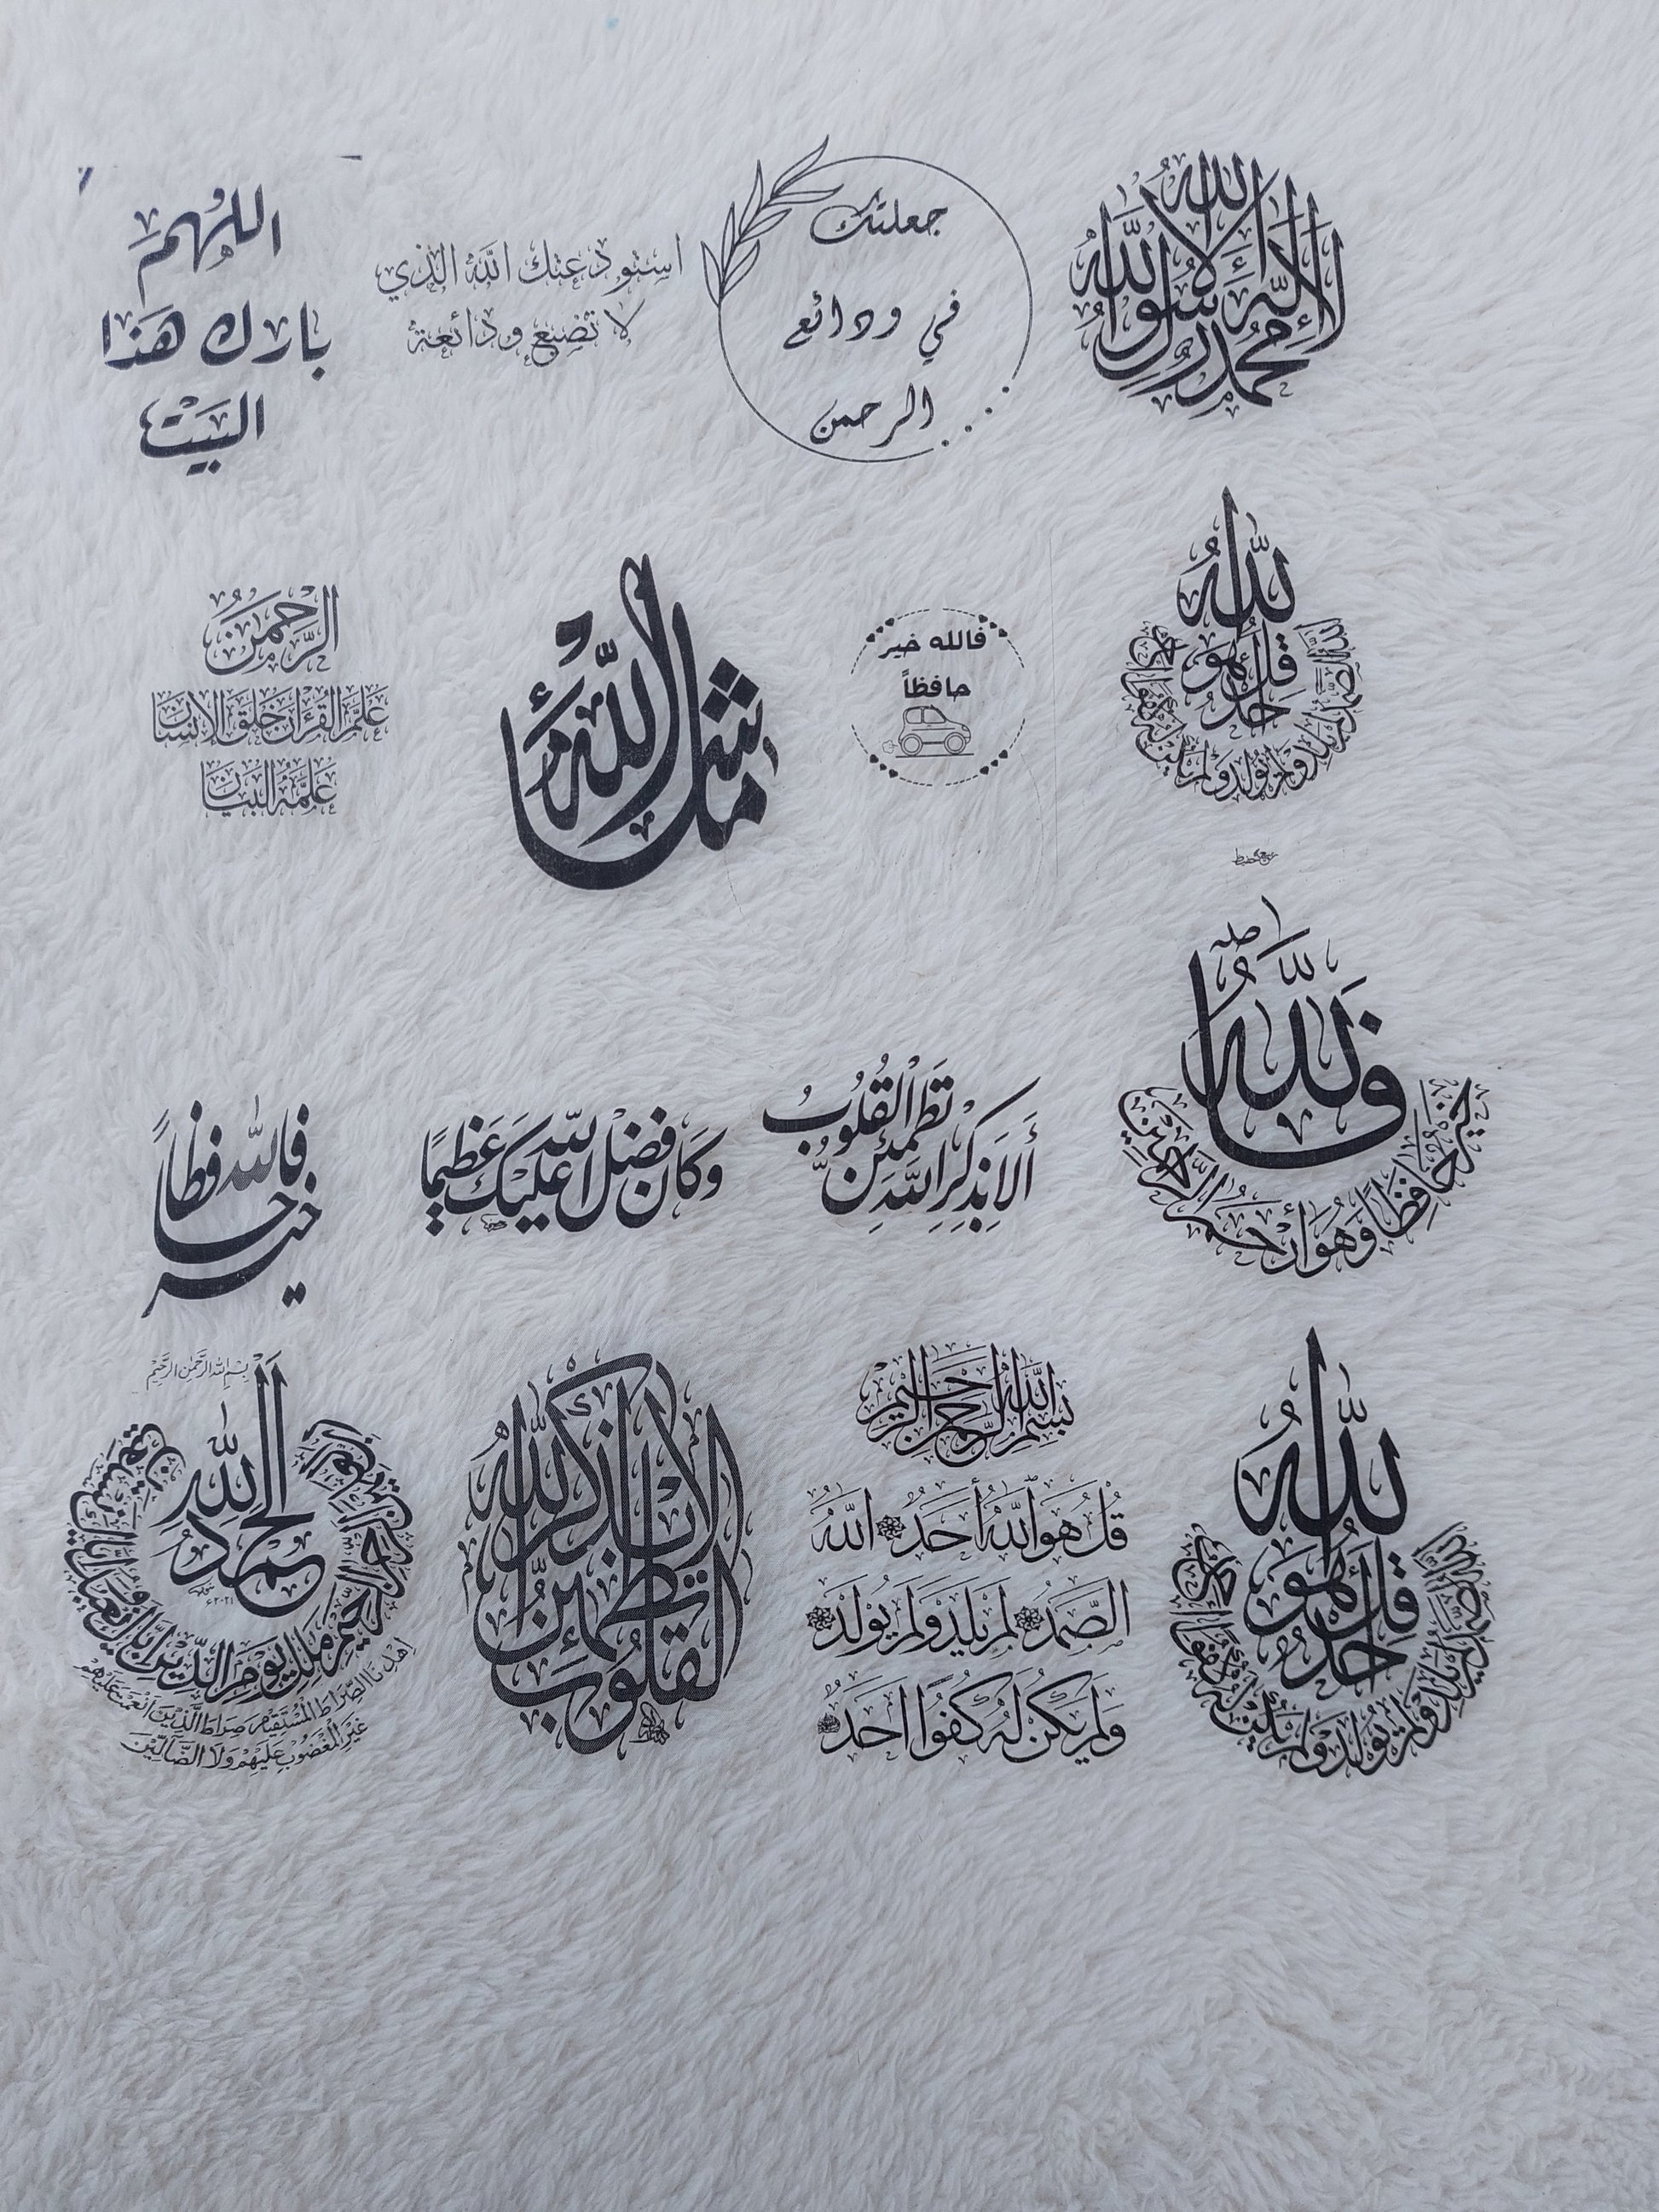 لا إله إلا الله
محمد رسول الله
جعلتك
في ودائع
الرحمن
استودعتك الله الذي
لا تضيع ودائعة
اللهم
بارك هذا
البيت
الله
قل هو
أحد
الله الصمد لم يلد ولم يولد ولم يكن له كفوا أحد
فالله خير
حافظاً
ما شاء الله
الرحمن
علم القرءان خلق الإنسان
علمه البيان
فالله
خير حافظا وهو أرحم الراحمين
ألا بذكر الله تطمئن القلوب
وكان فضل الله عليك عظيما
فالله خير حافظاً
الله
قل هو
أحد
الله الصمد لم يلد ولم يولد ولم يكن له كفوا أحد
بسم الله الرحمن الرحيم
قل هو الله أحد الله
الصمد لم يلد ولم يولد
ولم يكن له كفوا أحد
ألا بذكر الله تطمئن القلوب
بسم الله الرحمن الرحيم
الحمد لله
رب العالمين الرحمن الرحيم ملك يوم الدين إياك نعبد وإياك نستعين
اهدنا الصراط المستقيم صراط الذين أنعمت عليهم
غير المغضوب عليهم ولا الضالين